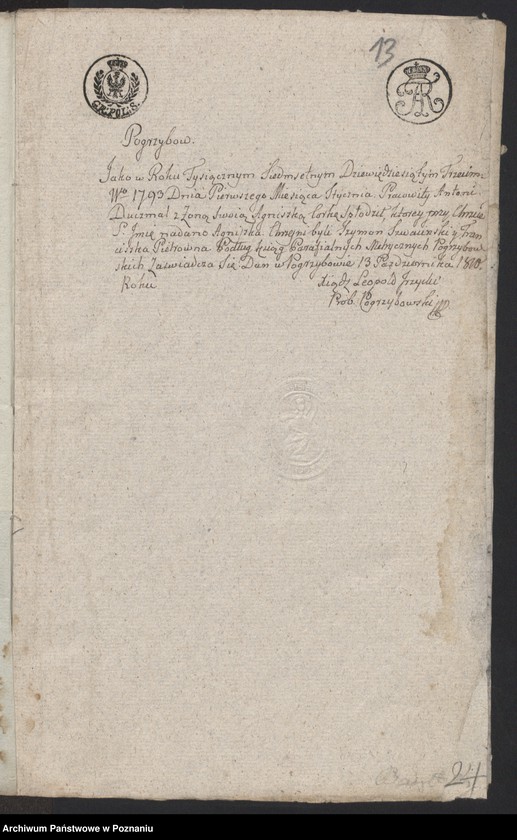 13
GR: POL: 8.
Pogrzybow.
Jako w Roku Tysiącznym Siedmsetnym Dziewiędziesiątym Trzecim
Nro 1793 Dnia Pierwszego Miesiąca Stycznia Pracowity Antoni
Duczmal z Żoną Swoią Agniszką Corkę Spłodził ktorey przy Chrzcie
S. Imię nadano Agniszka. Chrzesni byli Szymon y Fran
ciszka Piotrowna Podług Xsiąg Parafialnych Metrycznych Pogrzybow
skich Zaswiadcza Się Dan w Pogrzybowie 13 Pazdziernika 1810
Roku
Xiądz Leopold
Prob. Pogrzybowski
24
Archiwum Państwowe w Poznaniu